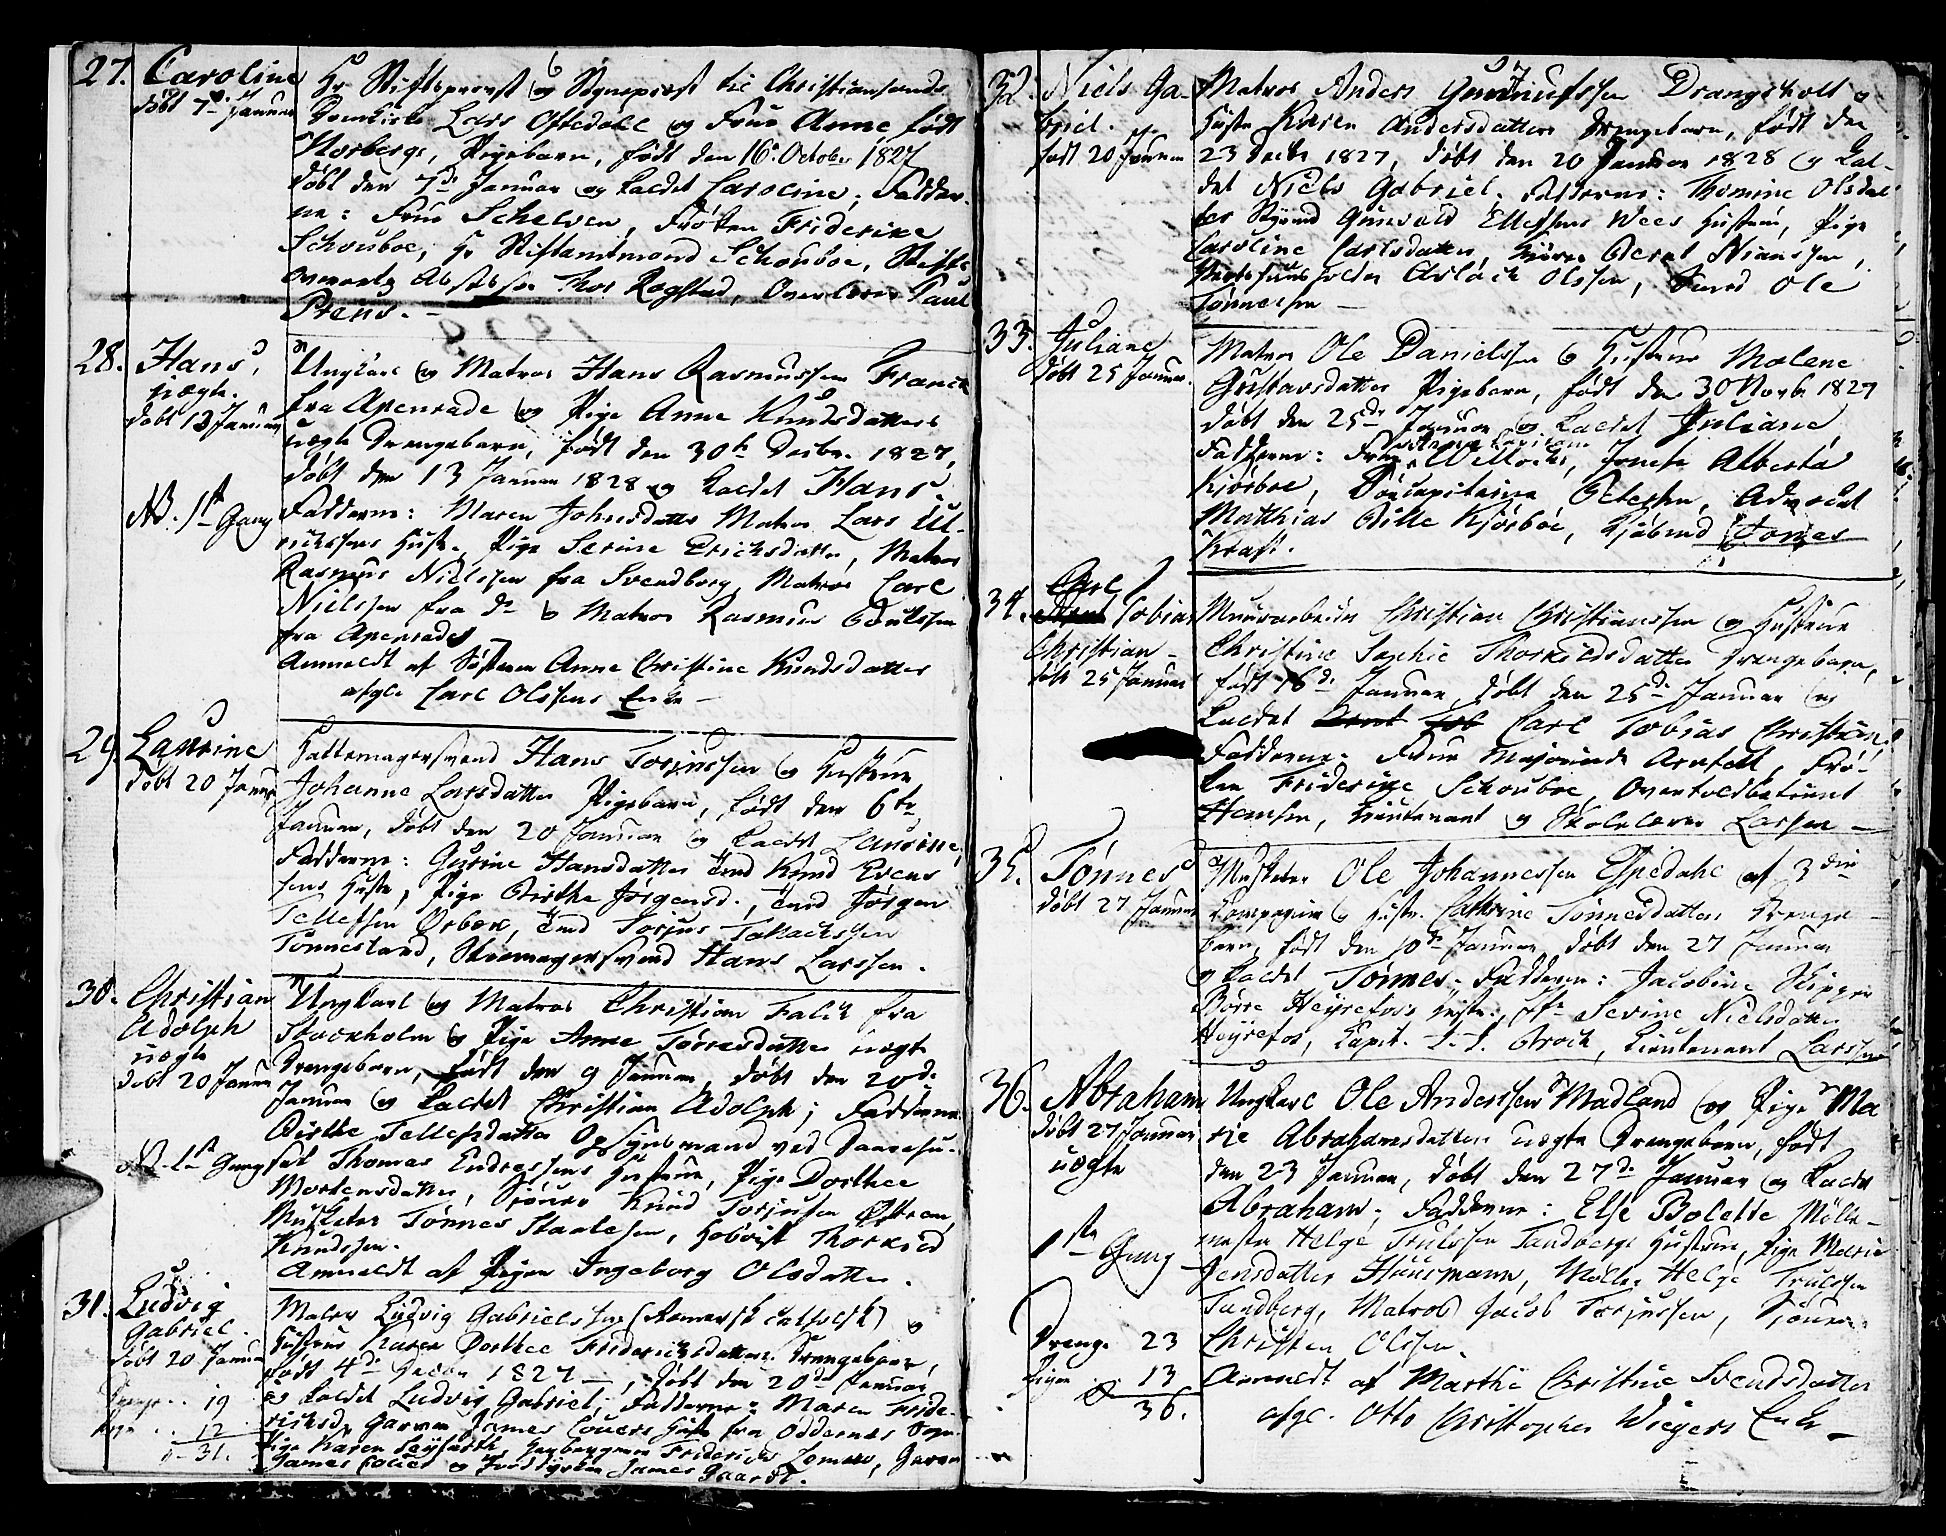 27. Caroline
døbt 7de Januar
Hr Stiftsprovst og Sogneprest til Christiansands
Domkirke Lars Oftedahl og Frue Anne født
Norberg, Pigebarn, født den 16 October 1827
døbt den 7de Januar og kaldet Caroline; Fadder-
ne: Frue Schelven, Frøken Friderike
Schouboe, Hr Stiftamtmand Schouboe, Stifts
Thor Rogstad, Overlærer Paul
Preus.
28. Hans,
uægte.
døbt 13 Januar
NB. 1ste Gang
Ungkarl og Matros Hans Rasmussen Franck
fra Apenrade og Pige Anne Knudsdatters
uægte Drengebarn, født den 30te Decbr. 1827,
døbt den 13 Januar 1828 og kaldet Hans.
Fadderne: Maren Johnsdatter Matros Lars Ul-
richssens Hustr. Pige Serine Ericksdatter, Matros
Rasmus Nielssen fra Svendborg, Matros Carl
Nielssen fra do og Matros Rasmus
fra Apenrade
Anmeldt af Søsteren Anne Christine Knudsdatter
afgl. Carl Olssens Enke
29. Laurine
døbt 20 Januar
Hattemagersvend Hans Torjussen og Hustrue
Johanne Larsdatter Pigebarn, født den 6te
Januar, døbt den 20 Januar og kaldet Laurine
Fadderne: Gurine Hansdatter Knud Evens
sens Hustr, Pige Birthe Jørgensd., Jørgen
Tellefsen Ørbek, Torjus
Tønnesland, Skomagersvend Hans Larssen.
30. Christian
Adolph
uægte
døbt 20 Januar
NB. 1ste Gang
Ungkarl og Matros Christian Falck fra
Stockholm og Pige Anne Tørresdatter uægte
Drengebarn, født den 9 Januar, døbt den 20de
Januar og kaldet Christian Adolph; Fadderne
Birthe Tellefsdatter Opsynsmand ved
Thomas Endressens Hustrue, Pige Dorthea
Mortensdatter, Knud Torjusen Østrem,
Musketer Tønnes Staalesen, Hoboist Thorkild
Knudssen.
Anmeldt af Pigen Ingeborg Olsdatter.
31. Ludvig
Gabriel.
døbt 20 Januar
Drenge.. 19
Pige .. 12
31.
Maler Ludvig Gabrielssen (Romersk catholsk) og
Hustrue Karen Dorthea Friderichsdatters Drengebarn,
født 4de Decbr 1827, døbt den 20de Januar
og kaldet Ludvig Gabriel, Fadderne: Maren Fride-
richsd. Garver James Couers Hustr fra Oddernes Sogn
Pige Karen Friderich Garver
James Couer og James Gaardt.
32. Niels Ga-
briel.
døbt 20 Januar
Matros Anders Drangsholt og
Hustr Karen Andersdatters Drengebarn, født den
23 Decbr 1827, døbt den 20 Januar 1828 og kal-
det Niels Gabriel. Fadderne: Thomine Olsdat-
ter Gunvald Ellefsens Wees Hustrue, Pige
Caroline Carlsdatter, Bernt Nianssen,
Aslack Olssen, Ole
Tønnesen
33. Juliane
døbt 25 Januar
Matros Ole Danielssen og Hustrue Malene
Gustavsdatters Pigebarn, født den 30 Novbr 1827
døbt den 25de Januar og kaldet Juliane
Fadderne: Frue Willochs, Jomfr Alberta
Kjørboe, Petersen, Advocat
Matthias Bille Kjørboe, Tomas
Kraft.
34. Carl
Tobias
Christian
døbt 25 Januar
Christian Christianssen og Hustrue
Christine Sophie Thorkildsdatters Drengebarn,
født 16de Januar, døbt den 25de Januar og
kaldet Carl Tobias Christian.
Fadderne: Frue Majorinde Arnfelt, Frø-
ken Friderike Schouboe, Overtoldbetjent
Hansen, Lieutenant og Skolelærer Larsen
35. Tønnes
døbt 27 Januar
Musketer Ole Johannessen Espedahl af 3die
Compagnie og Hustr. Cathrine Tønnesdatters Drenge-
barn, født den 10de Januar, døbt den 27 Januar
og kaldet Tønnes. Fadderne: Jacobine Skipper
Børre Heyrefos Hustr., Serine Nielsdatter
Heyrefos, Capit. Broch, Lieutenant Larssen
36. Abraham
døbt 27 Januar
uægte
1ste Gang
Ungkarl Ole Anderssen Madland og Pige Ma-
rie Abrahamsdatters uægte Drengebarn, født
den 23 Januar, døbt den 27de Januar og kaldet
Abraham; Fadderne: Else Bolette Mølle-
mester Helge Trulssen Tandbergs Hustrue, Pige Marie
Jensdatter Huusmann, Møller Helge Trulssen
Tandberg, Matros Jacob Torjussen,
Christen Olssen.
Anmeldt af Marthe Christine Svendsdatter
afgl. Otto Christopher Wiegers Enke
Drenge 23
Piger 13
36.